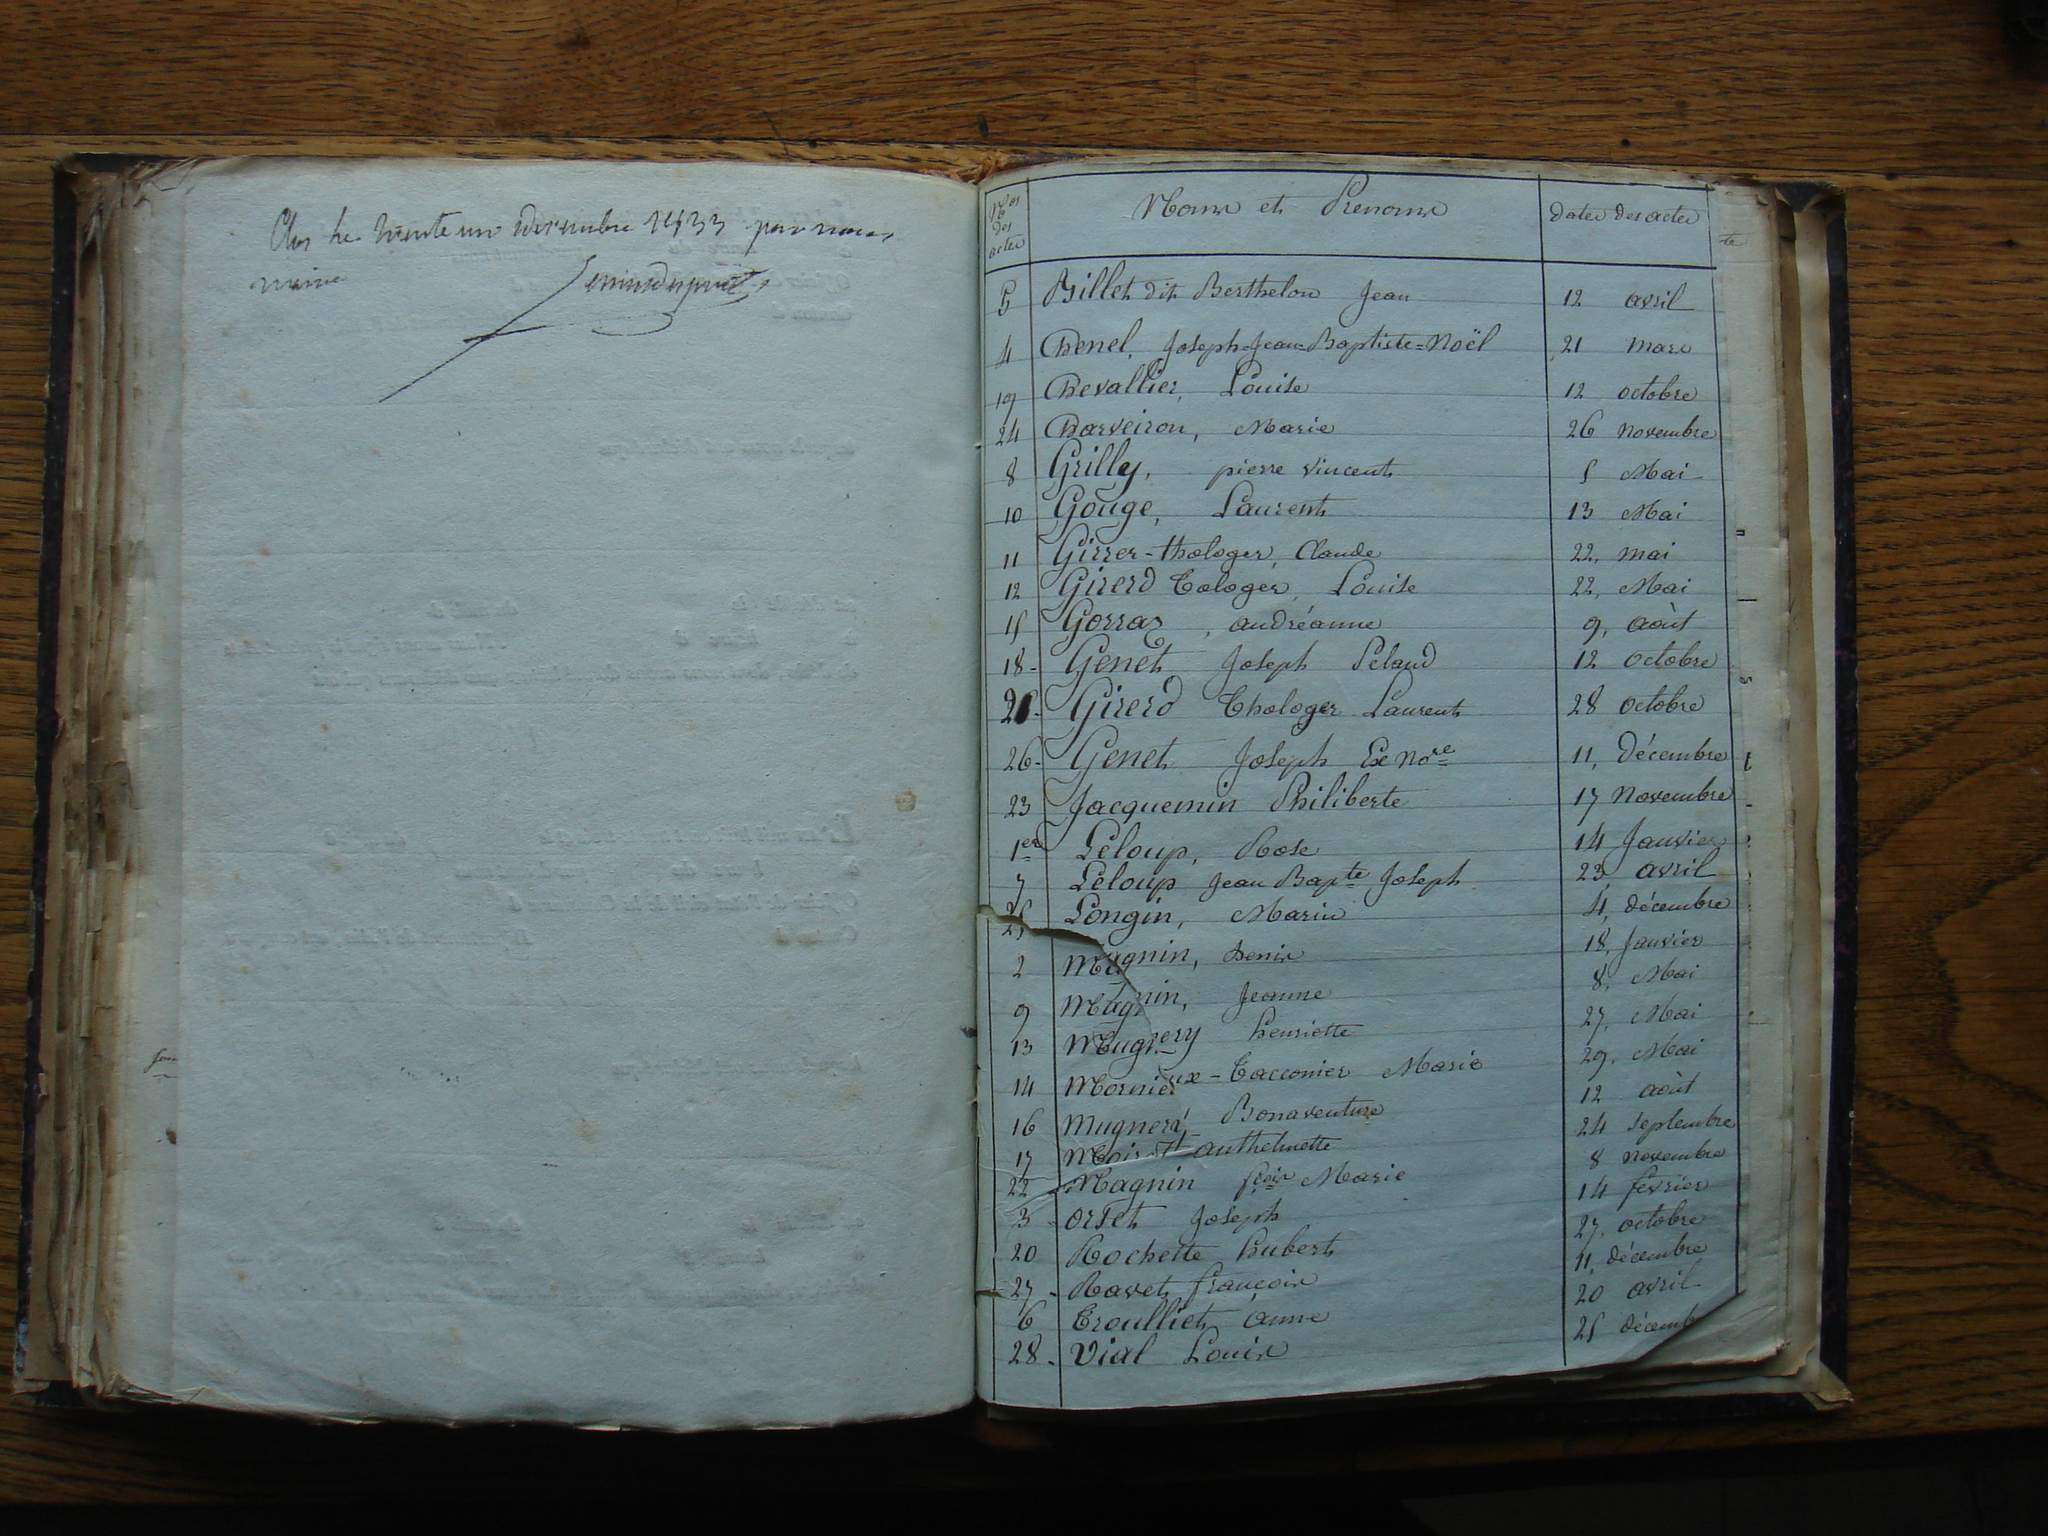 Clos le trente un décembre 1833 par nous,
maire
Nos des actes Noms et Prenoms Dates des actes
5 Billet dit Berthelon Jean 12 avril
4 Chenel, Joseph=Jean=Baptiste=Noël 21 mars
19 Chevallier, Louise 12 octobre
24 Charveiron, Marie 26 novembre
8 Grilly, pierre vincent 5 Mai
10 Gouge, Laurent 13 Mai
11 Girrer-thologer, Claude 22, mai
12 Girerd Tologer, Louise 22, Mai
15 Gorraz, andréanne 9, août
18- Genet Joseph Pelaud 12 octobre
21- Girerd Thologer Laurent 28 octobre
26- Genet Joseph Ex Nore 11, Décembre
23 Jacquemin Philiberte 17 Novembre
1er Leloup, Rose 14 Janvier
7 Leloup Jean Bapte Joseph 23 avril
25 Longin, Marin 4, décembre
2 Magnin, Denis 18, Janvier
9 Magnin, Jeanne 8, Mai
13 Mugnery henriette 27, Mai
14 Mornieux-Tacconier Marie 29, Mai
16 Mugneri Bonaventure 12 août
17 anthelmette 24 septembre
22 Magnin fçois Marie 8 novembre
3 - orset Joseph 14 fevrier
20 Rochette hubert 27, octobre
27 - Ravet françois 11, décembre
6 Troulliet anne 20 avril
28 - Vial Louis 25 décemb